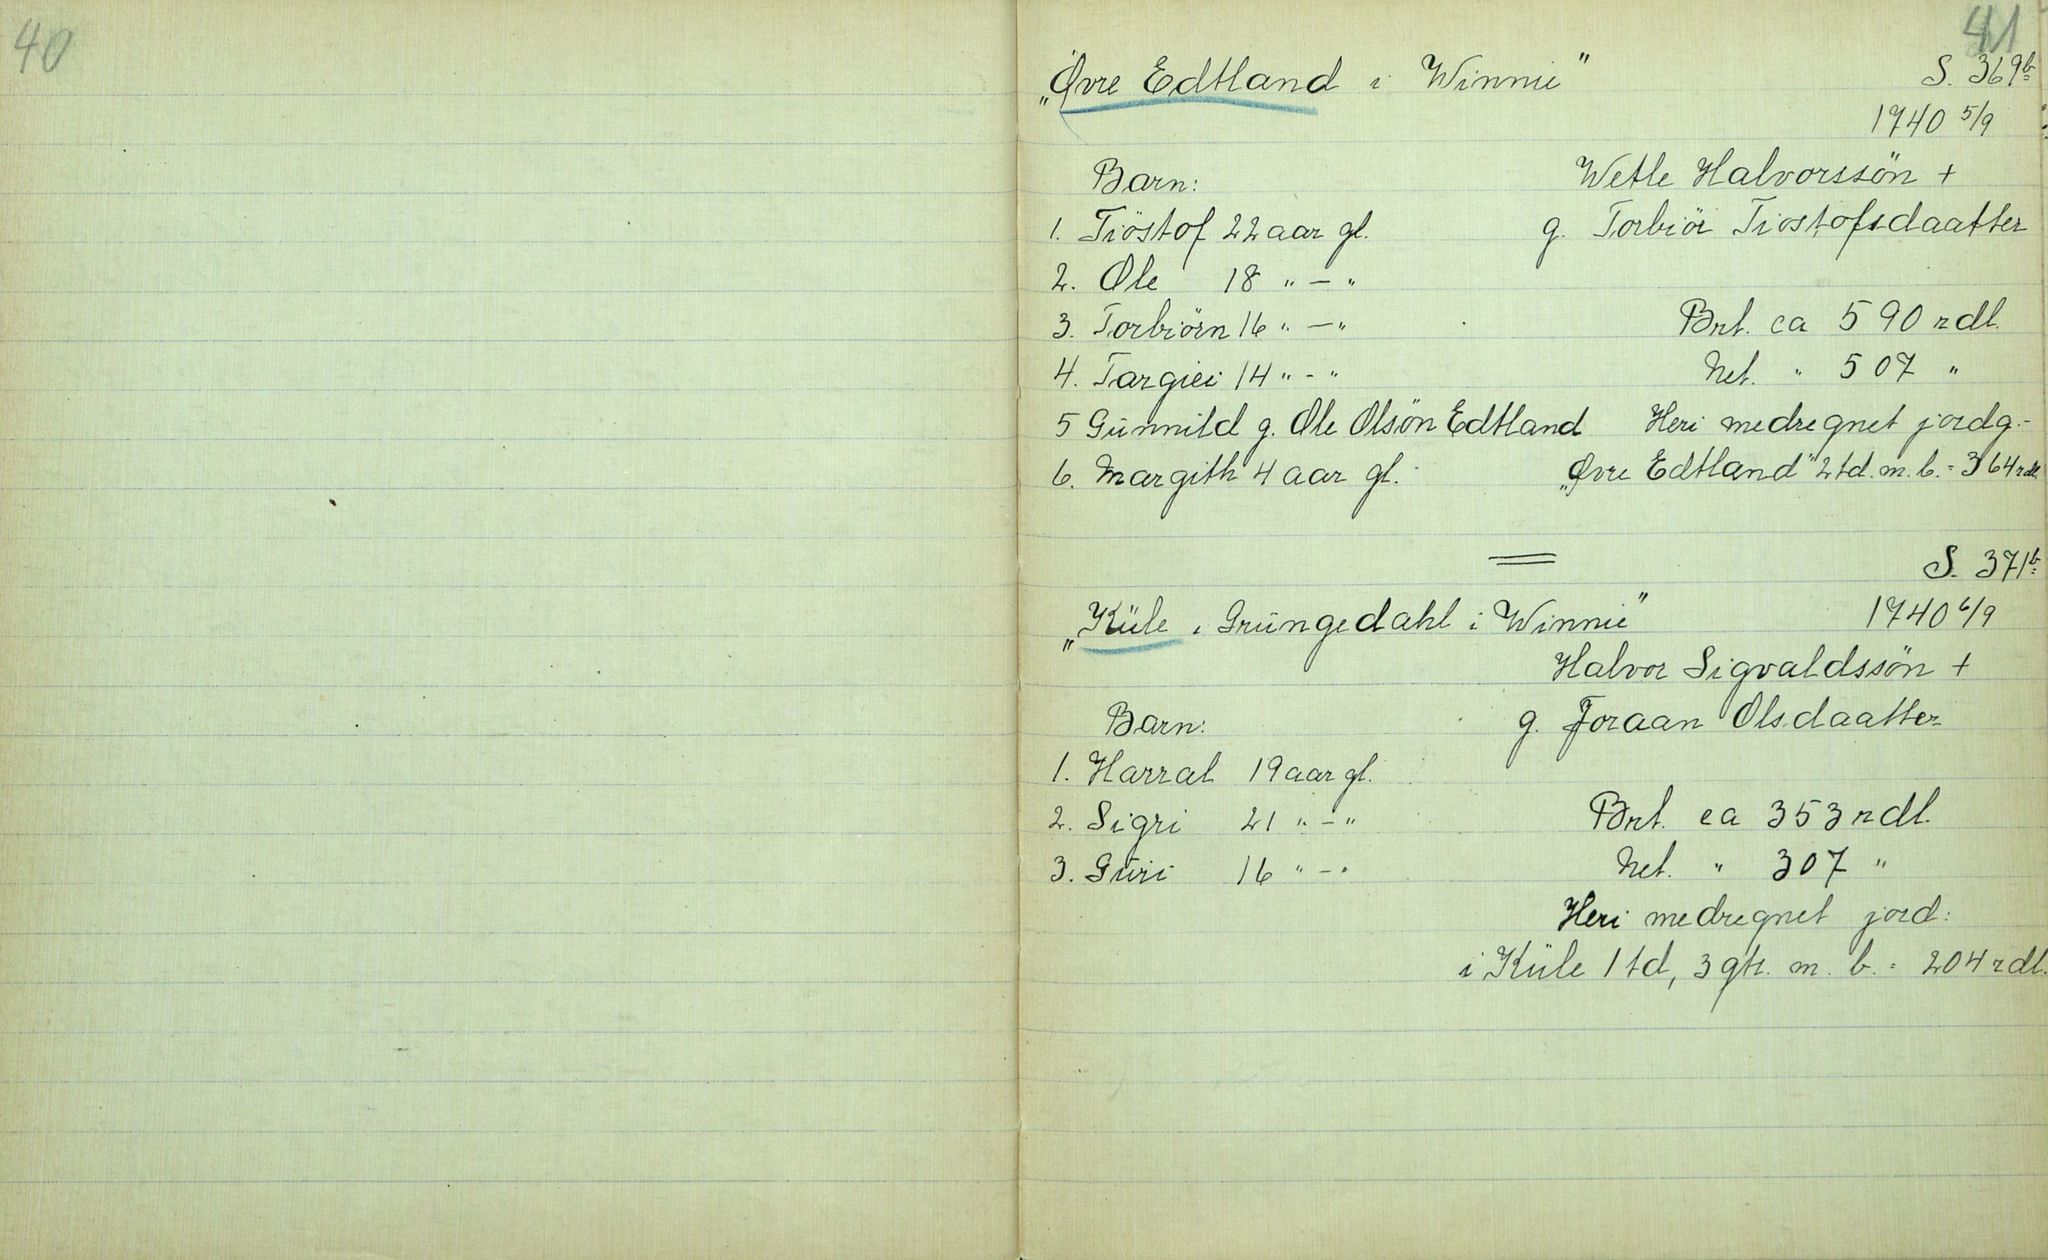 40
41
„Øvre Edtland i Winnie" S. 369b
1740 5/9
Barn: Wetle Halvorssön +
1. Tiöstof 22 aar gl. g. Torbiör Tiostofsdaatter
2. Ole 18 " – "
3. Torbiörn 16 " – " Brt. ca 590 rdl.
4. Targiei 14 " - " Net. " 507 "
5 Gunnild g. Ole Olsön Edtland Heri medregnet jordg.-
6. Margith 4 aar gl. „Øvre Edtland" 2 td. m. b. = 364 rdl.
S. 371b
„Kūle i Grūngedahl i Winnie" 1740 6/9
Halvor Sigvaldssön +
Barn: g. Joraan Olsdaatter
1. Harral 19 aar gl.
2. Sigri 21 " – " Brt. ca 353 rdl.
3. Gūri 16 " – " Net. " 307 "
Heri medregnet jord:
i Kūle 1 td, 3 gtr. m. b. = 204 rdl.